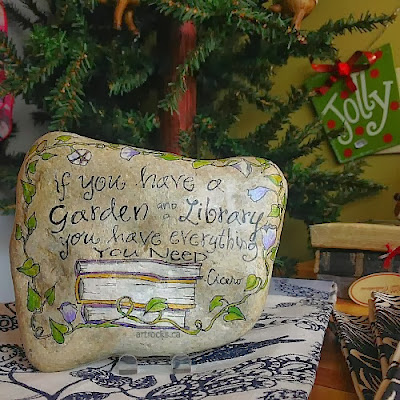 if you have a
Garden and a Library
you have everything
You Need
-Cicero
artrocks.ca
Jolly